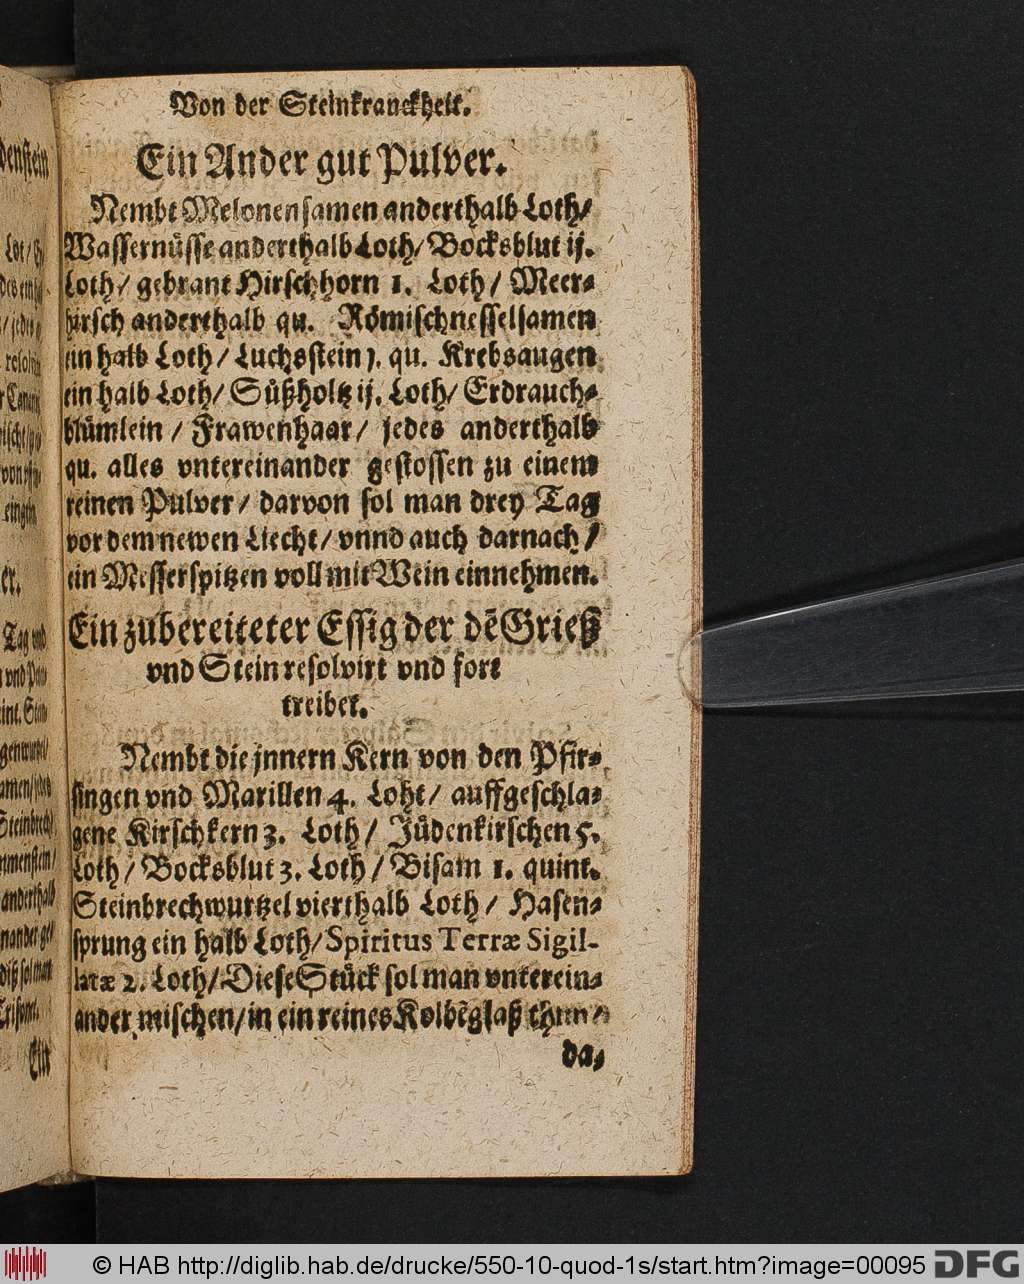 Von der Steinkranckheit.
Ein Ander gut Pulver.
Nembt Melonensamen anderthalb Loth/
Wassernüsse anderthalb Loth/ Bocksblut ij.
Loth/ gebrant Hirschhorn 1. Loth/ Meer-
hirsch anderthalb qu. Römischnesselsamen
ein halb Loth/ Luchsstein j. qu. Krebsaugen
ein halb Loth/ Süßholtz ij. Loth/ Erdrauch-
blümlein / Frawenhaar/ jedes anderthalb
qu. alles vntereinander gestossen zu einem
reinen Pulver/ darvon sol man drey Tag
vor dem newen Liecht/ vnnd auch darnach/
ein Messerspitzen voll mit Wein einnehmen.
Ein zubereiteter Essig der dẽ Grieß
vnd Stein resolvirt vnd fort
treibet.
Nembt die jnnern Kern von den Pfir-
singen vnd Marillen 4. Loht/ auffgeschla-
gene Kirschkern 3. Loth/ Jüdenkirschen 5.
Loth/ Bocksblut 3. Loth/ Bisam 1. quint.
Steinbrechwurtzel vierthalb Loth/ Hasen-
sprung ein halb Loth/ Spiritus Terræ Sigil-
latæ 2. Loth/ Diese Stück sol man vnterein-
ander mischen/ in ein reines Kolbẽglaß thun/
da-
© HAB http://diglib.hab.de/drucke/550-10-quod-1s/start.htm?image=00095 DFG